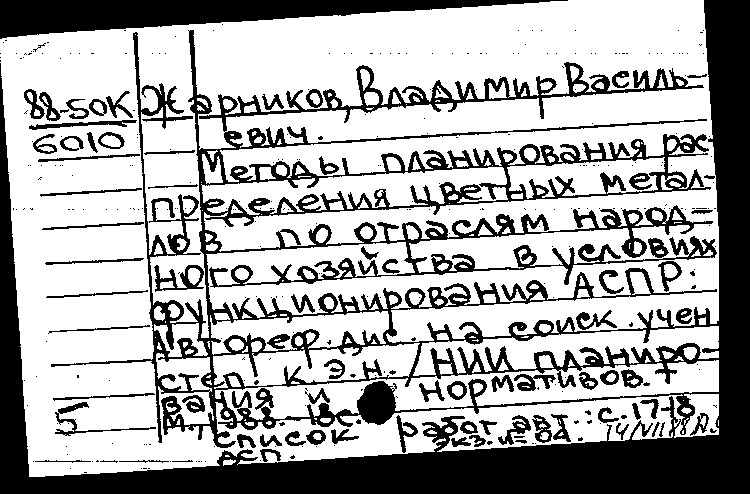 88-50К Жарников, Владимир Василь-
6010 евич.
Методы планирования рас-
пределения цветных метал-
лов по отраслям народ-
ного хозяйства в условиях
функционирования АСПР:
Автореф. дис. на соиск. учен.
степ. к.э.н. / НИИ планиро-
вания и нормативов. +
5 М., 1988. - 18с.
список работ авт.: с. 17-18
экз. и= 04. 14/VII 88
дсп.